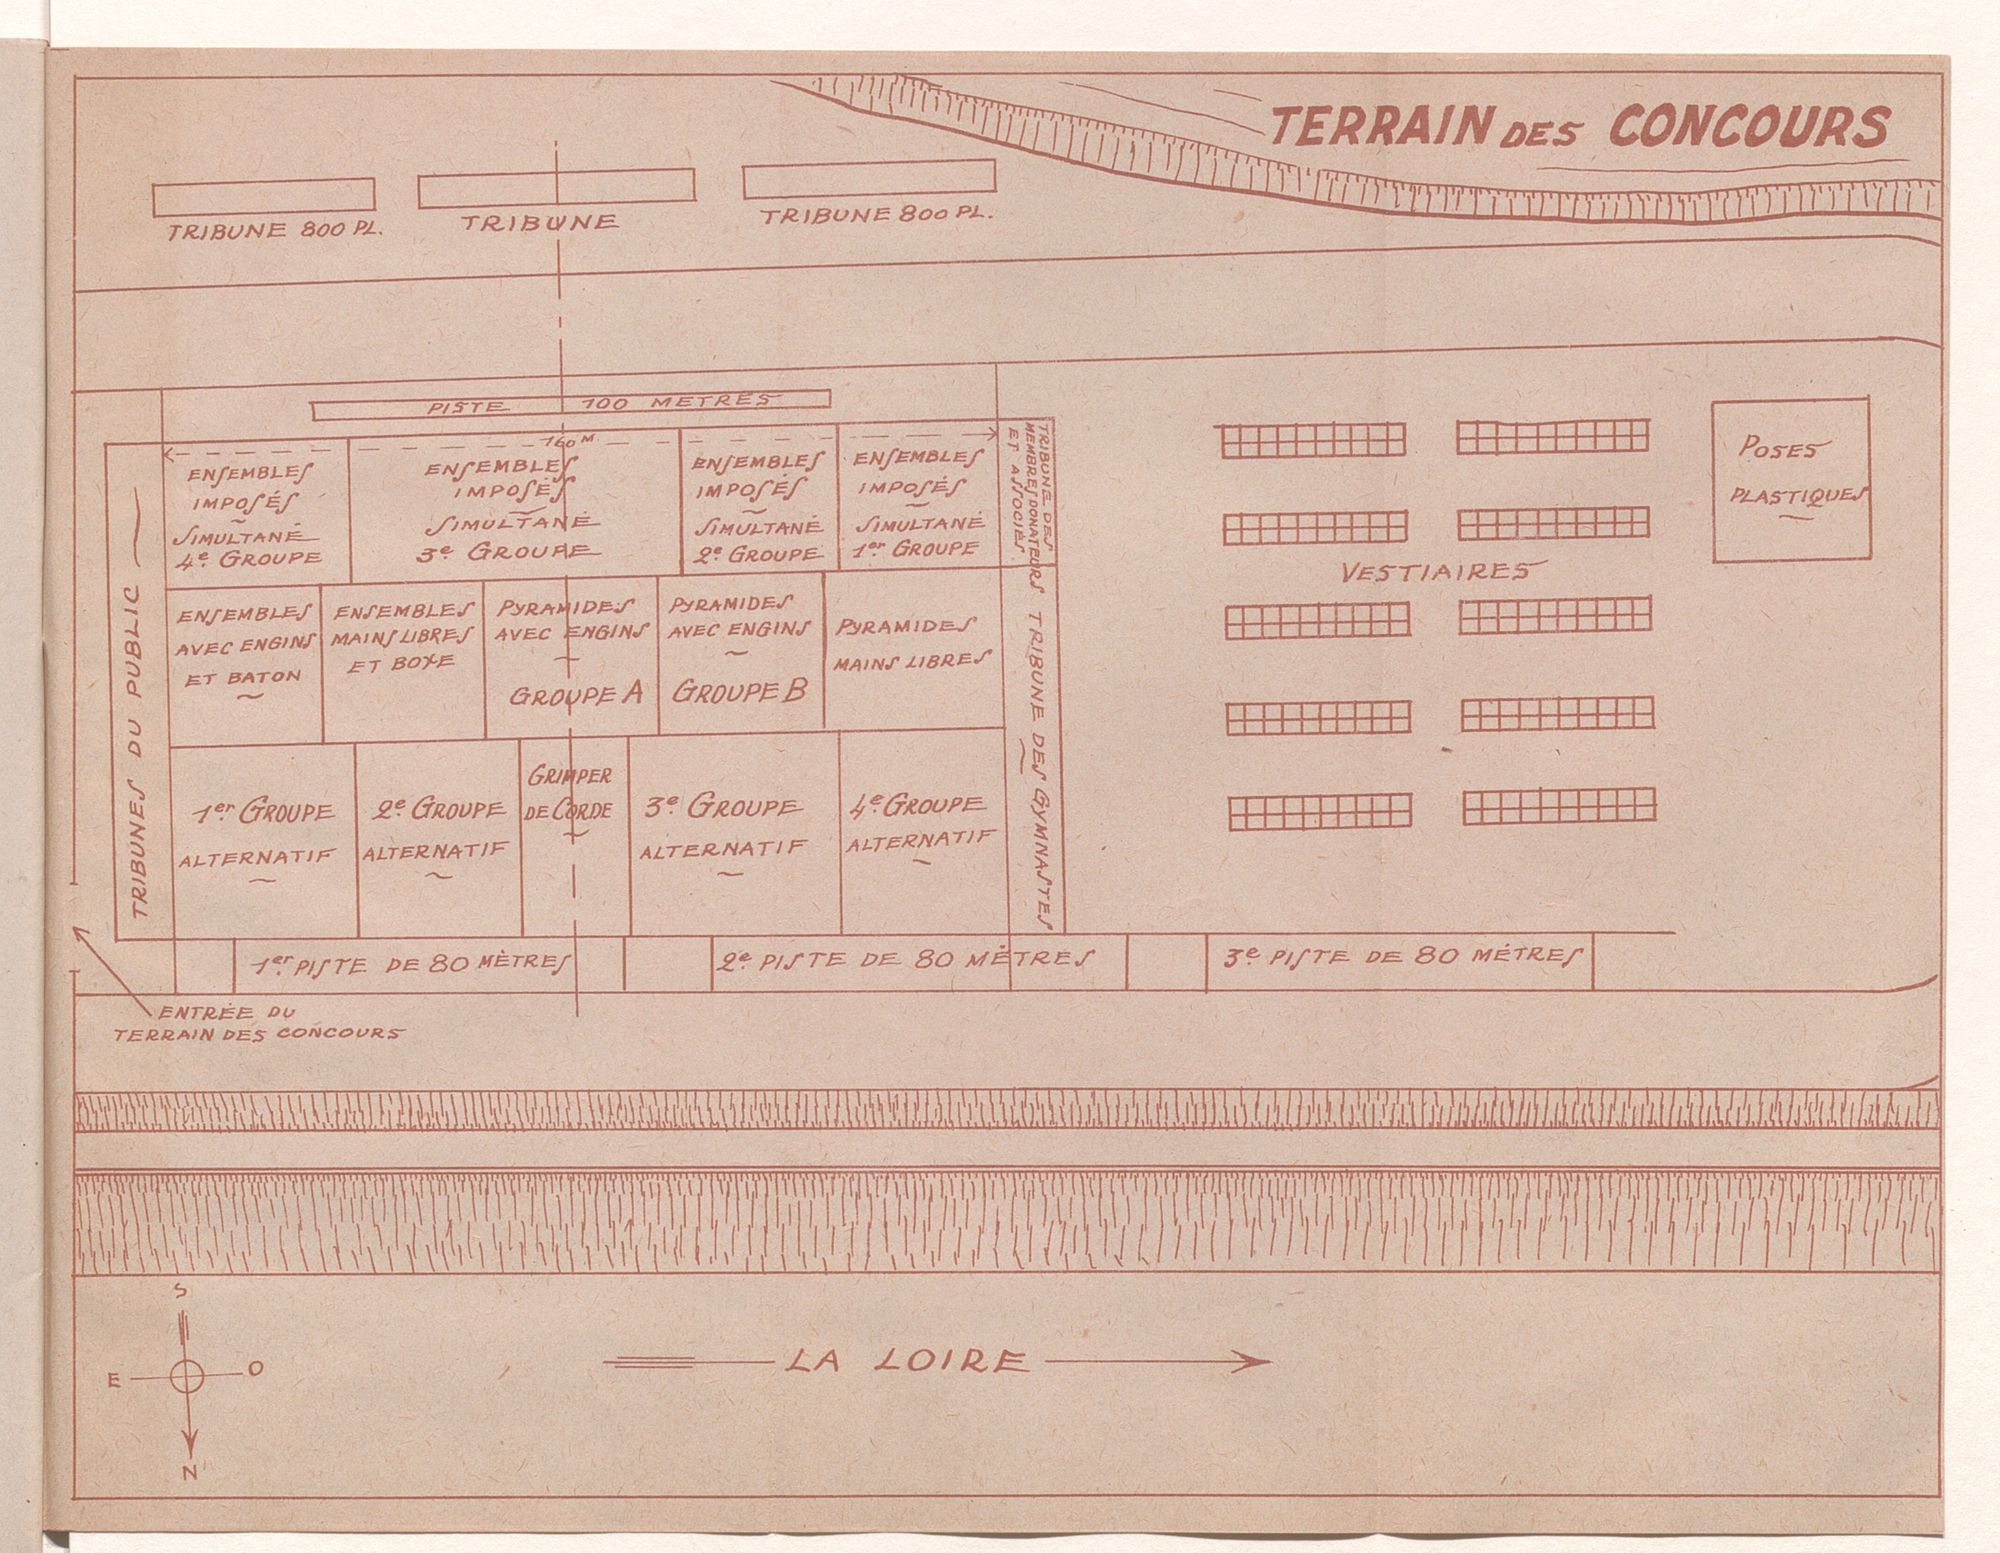 TERRAIN DES CONCOURS
TRIBUNE 800 PL.
TRIBUNE
TRIBUNE 800 PL.
PISTE 100 METRES
160 M
ENSEMBLES
IMPOSÉS
SIMULTANÉ
4e GROUPE
ENSEMBLES
IMPOSÉS
SIMULTANÉ
3e GROUPE
ENSEMBLES
IMPOSÉS
SIMULTANÉ
2e GROUPE
ENSEMBLES
IMPOSÉS
SIMULTANÉ
1er GROUPE
TRIBUNE DES
MEMBRES DONATEURS
ET ASSOCIÉS
POSES
PLASTIQUES
VESTIAIRES
TRIBUNES DU PUBLIC
ENSEMBLES
AVEC ENGINS
ET BATON
ENSEMBLES
MAINS LIBRES
ET BOXE
PYRAMIDES
AVEC ENGINS
GROUPE A
PYRAMIDES
AVEC ENGINS
GROUPE B
PYRAMIDES
MAINS LIBRES
TRIBUNE DES GYMNASTES
1er GROUPE
ALTERNATIF
2e GROUPE
ALTERNATIF
GRIMPER
DE CORDE
3e GROUPE
ALTERNATIF
4e GROUPE
ALTERNATIF
1er PISTE DE 80 MÈTRES
2e PISTE DE 80 MÉTRES
3e PISTE DE 80 MÉTRES
ENTRÉE DU
TERRAIN DES CONCOURS
S
E
O
N
LA LOIRE